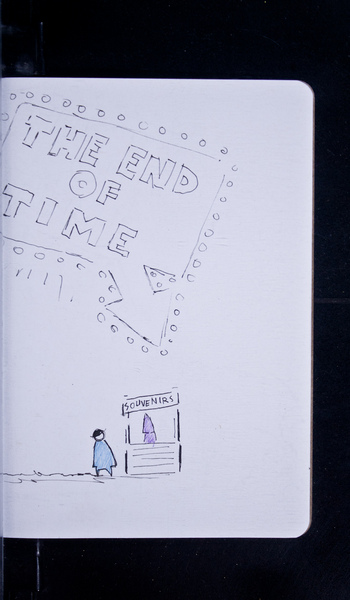 THE END
OF
TIME
SOUVENIRS